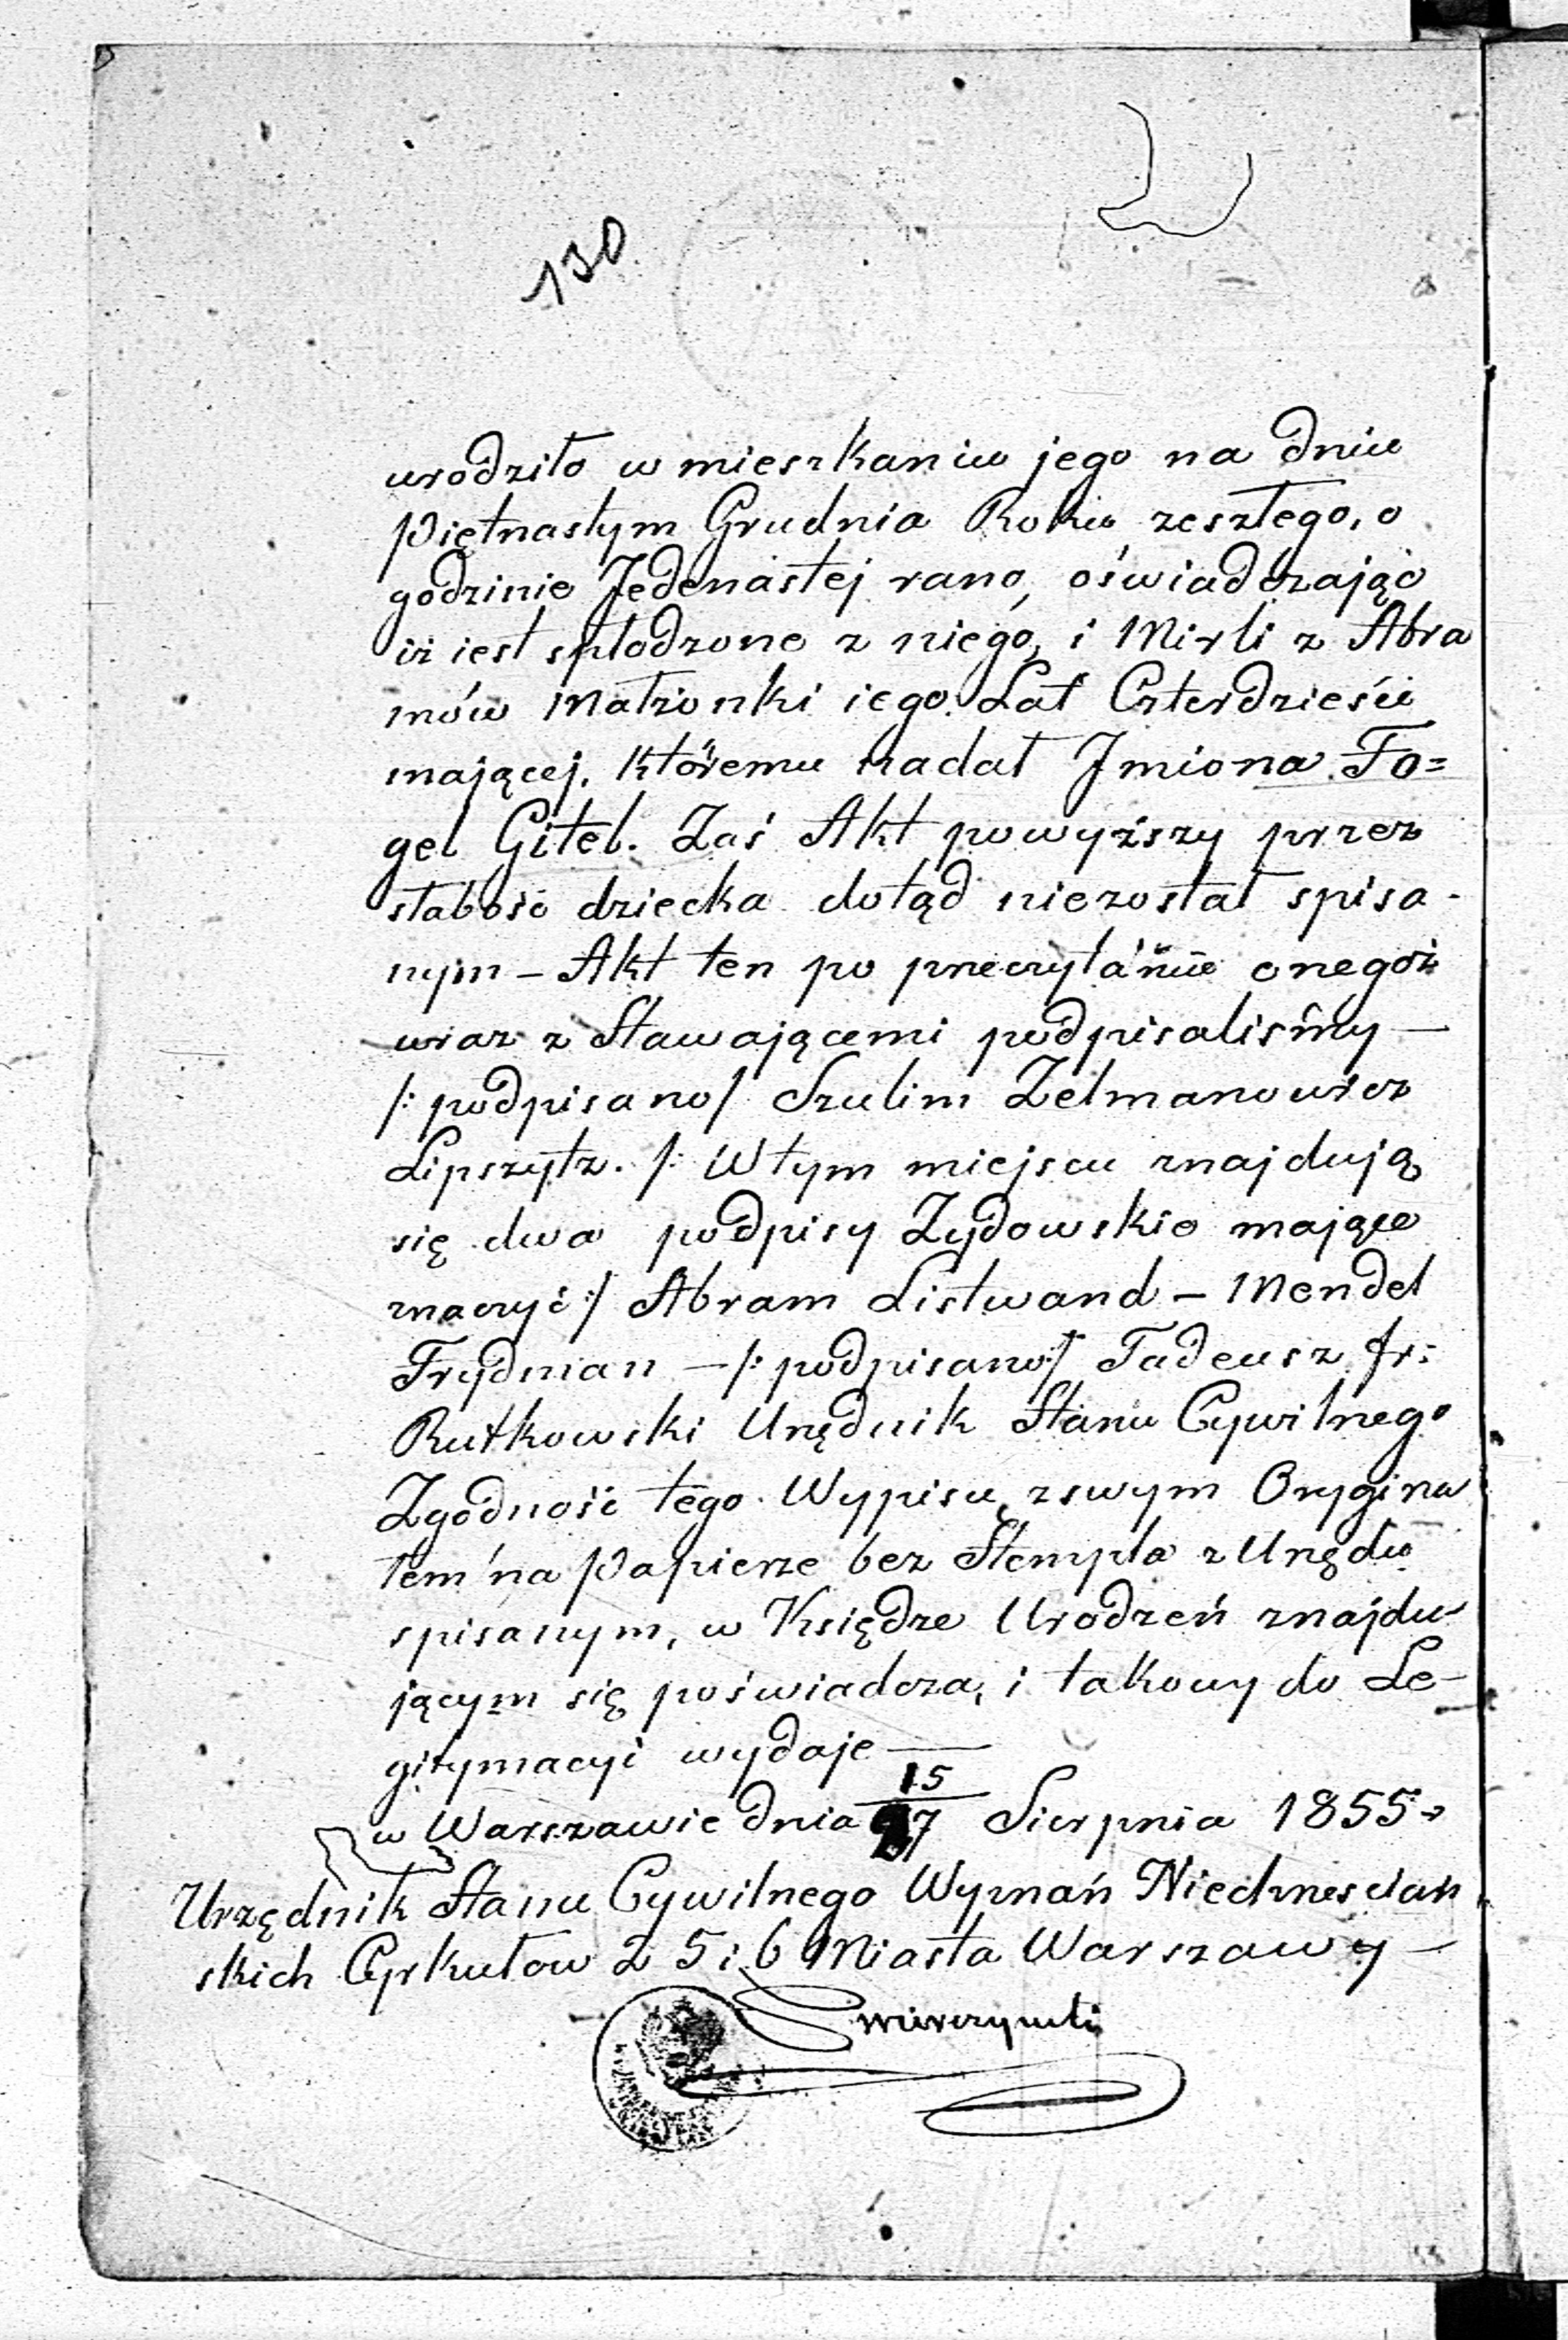 130
urodziło w mieszkaniu jego na dniu
Piętnastym Grudnia Roku zeszłego, o
godzinie Jedenastej rano, oświadczając
iż iest spłodzone z niego, i Mirli z Abra
mów Małżonki iego. Lat Czterdzieści
mającej, któremu nadał Jmiona Fo=
gel Gitel. Zaś Akt powyższy przez
słabość dziecka dotąd niezostał spisa-
nym – Akt ten po przeczytaniu onegoż
wraz z Stawającemi podpisaliśmy —
/: podpisano/ Szulim Zelmanowicz
Lipszytz. /: W tym miejscu znajdują
się dwa podpisy Żydowskie mające
znaczyć :/ Abram Listwand – Mendel
Frydman – /: podpisano :/ Tadeusz Fr:
Rutkowski Urzędnik Stanu Cywilnego
Zgodność tego Wypisu z swym Orygina
łem na Papierze bez Stempla z Urzędu
spisanym, w Księdze Urodzeń znajdu-
jącym się poświadcza, i takowy do Le-
gitymacyi wydaje —
w Warszawie dnia 15/27 Sierpnia 1855 r
Urzędnik Stanu Cywilnego Wyznań Niechrześciań
skich Cyrkułów 2 5 i 6 Miasta Warszawy —